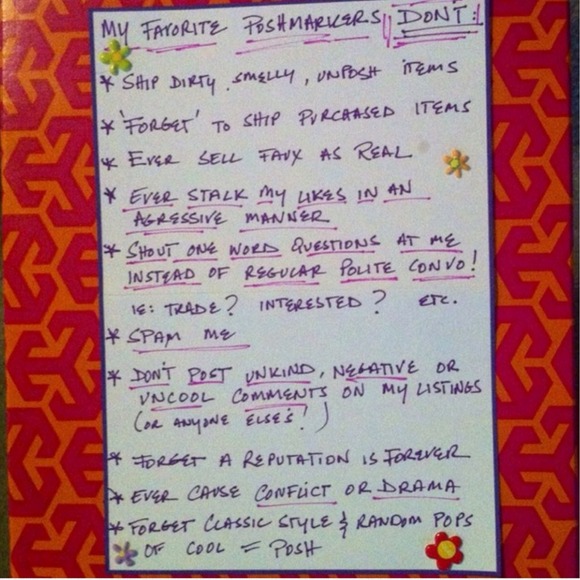 MY FAVORITE POSHMARKERS DON'T:
* SHIP DIRTY, SMELLY, UNPOSH ITEMS
* 'FORGET' TO SHIP PURCHASED ITEMS
* EVER SELL FAUX AS REAL
* EVER STALK MY LIKES IN AN
AGRESSIVE MANNER
* SHOUT ONE WORD QUESTIONS AT ME
INSTEAD OF REGULAR POLITE CONVO!
IE: TRADE? INTERESTED? ETC.
* SPAM ME
* DON'T POST UNKIND, NEGATIVE OR
UNCOOL COMMENTS ON MY LISTINGS
(OR ANYONE ELSE'S!)
* FORGET A REPUTATION IS FOREVER
* EVER CAUSE CONFLICT OR DRAMA
* FORGET CLASSIC STYLE & RANDOM POPS
OF COOL = POSH